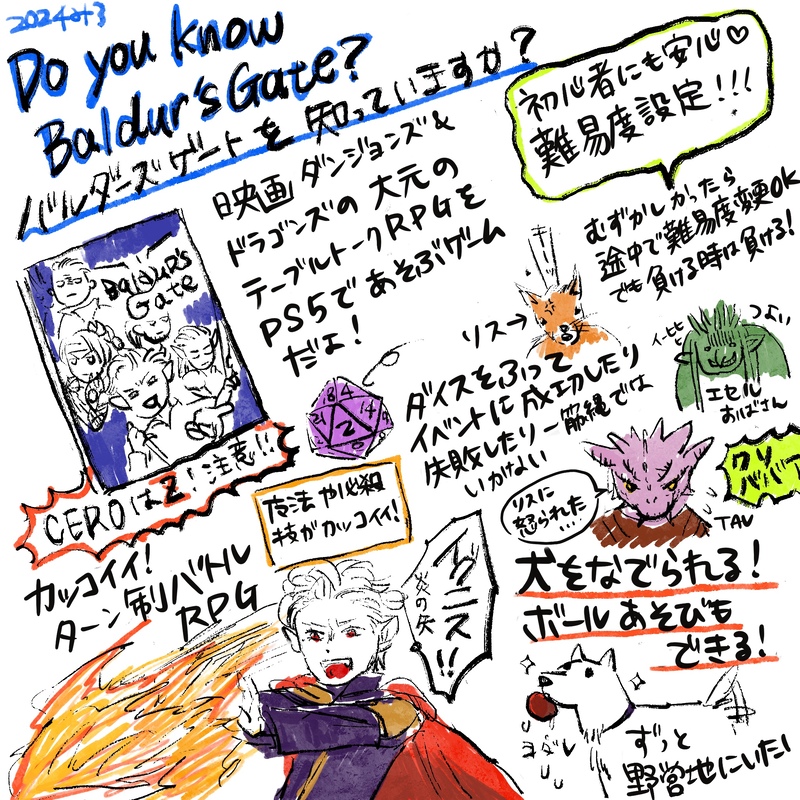 2024
Do you know
Baldur's Gate?
バルダーズゲートを知っていますか？
初心者にも安心♡
難易度設定!!!
映画ダンジョンズ&
ドラゴンズの大元の
テーブルトークRPGを
PS5であそぶゲーム
だよ!
むずかしかったら
途中で難易度変更OK
でも負ける時は負ける!
BALDUR'S
GATE
キーッ
リス→
イーヒヒヒ
つよい
エセル
おばさん
ダイスをふって
イベントに成功したり
失敗したり一筋縄では
いかない
8
4
21
14
2
9
CEROはZ!注意!!
リスに
怒られた…
TAV
クソ
ババー
魔法や必殺
技がカッコイイ!
カッコイイ!
ターン制バトル
RPG
イグニス!!
炎の矢
犬をなでられる!
ボールあそびも
できる!
ヨダレ
ずっと
野営地にいたい